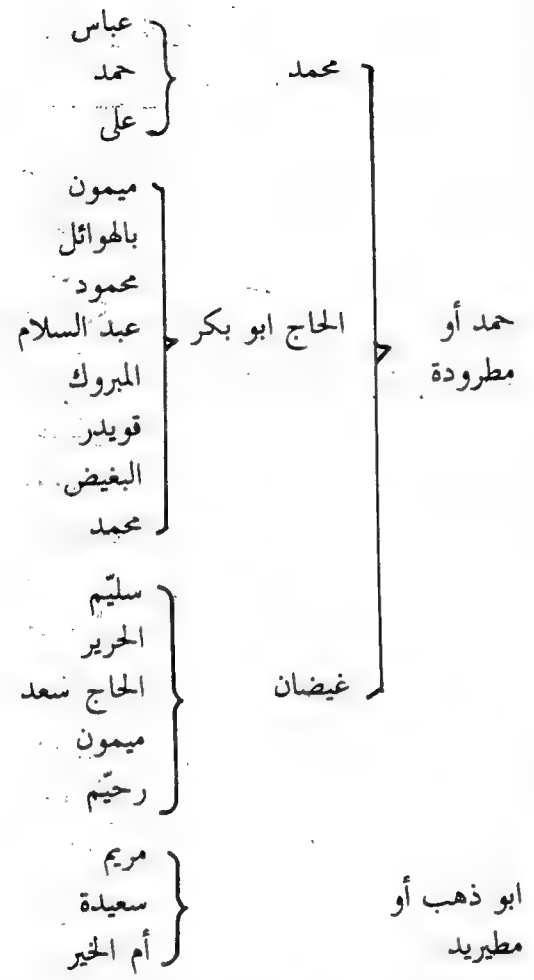 حمد أو
مطرودة
محمد
عباس
حمد
على
الحاج ابو بكر
ميمون
بالهوائل
محمود
عبد السلام
المبروك
قويدر
البغيض
محمد
غيضان
سليّم
الحرير
الحاج سعد
ميمون
رحيّم
ابو ذهب أو
مطيريد
مريم
سعيدة
أم الخير